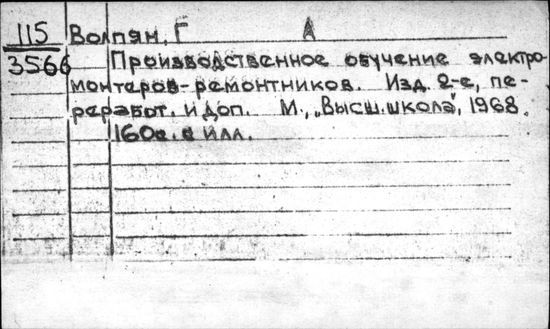 115 Волпян, Г А
3566 Производственное обучение электро-
монтеров-ремонтников. Изд. 2-е, пе-
реработ. и доп. М., „Высш. школа", 1968.
160с. с илл.